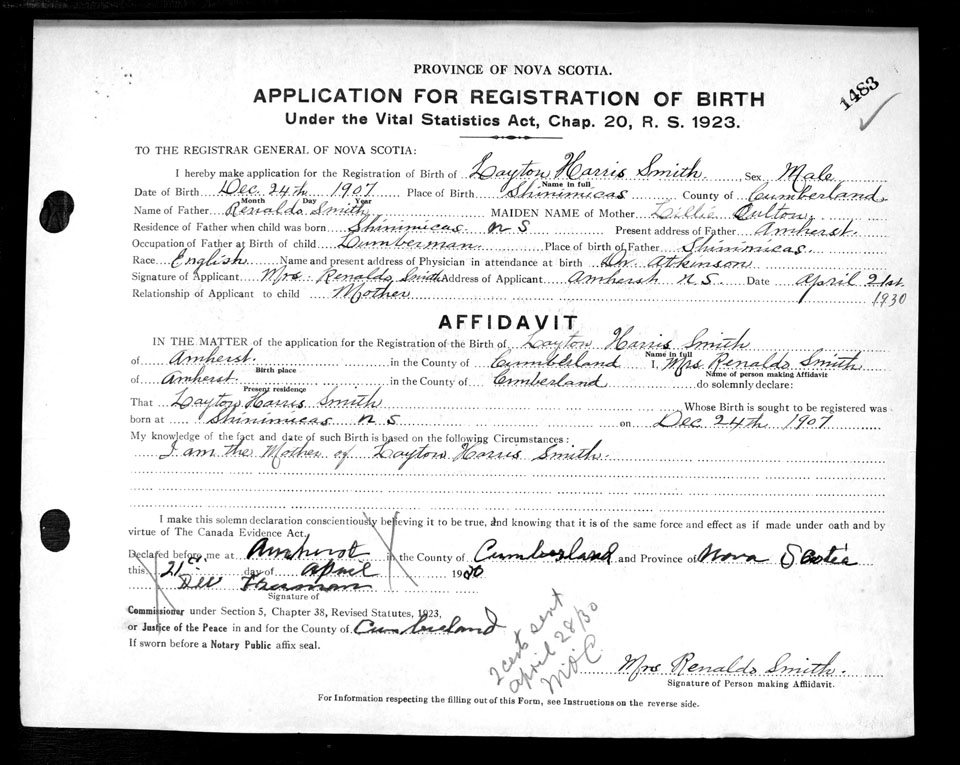 PROVINCE OF NOVA SCOTIA.
1483
APPLICATION FOR REGISTRATION OF BIRTH
Under the Vital Statistics Act, Chap. 20, R. S. 1923.
TO THE REGISTRAR GENERAL OF NOVA SCOTIA:
I hereby make application for the Registration of Birth of Layton Harris Smith Sex Male
Name in full
Date of Birth Dec. 24th 1907 Place of Birth Shinimicas County of Cumberland
Month Day Year
Name of Father Renaldo Smith MAIDEN NAME of Mother Lillie Oulton
Residence of Father when child was born Shinimicas N S Present address of Father Amherst.
Occupation of Father at Birth of child Lumberman Place of birth of Father Shinimicas.
Race English Name and present address of Physician in attendance at birth Dr. Atkinson
Signature of Applicant Mrs. Renaldo Smith Address of Applicant Amherst N S. Date April 21st
1930
Relationship of Applicant to child Mother
AFFIDAVIT
IN THE MATTER of the application for the Registration of the Birth of Layton Harris Smith
Name in full
of Amherst. in the County of Cumberland I, Mrs Renaldo Smith
Birth place Name of person making Affidavit
of Amherst. in the County of Cumberland do solemnly declare:
Present residence
That Layton Harris Smith Whose Birth is sought to be registered was
born at Shinimicas N S on Dec 24th 1907
My knowledge of the fact and date of such Birth is based on the following Circumstances:
I am the Mother of Layton Harris Smith.
I make this solemn declaration conscientiously believing it to be true, and knowing that it is of the same force and effect as if made under oath and by
virtue of The Canada Evidence Act.
Declared before me at Amherst in the County of Cumberland and Province of Nova Scotia
this 21st day of April 1930
Freeman
Signature of
Commissioner under Section 5, Chapter 38, Revised Statutes, 1923,
or Justice of the Peace in and for the County of Cumberland
If sworn before a Notary Public affix seal.
2 cert sent
April 28/30
Mrs Renaldo Smith.
Signature of Person making Affidavit.
For Information respecting the filling out of this Form, see Instructions on the reverse side.